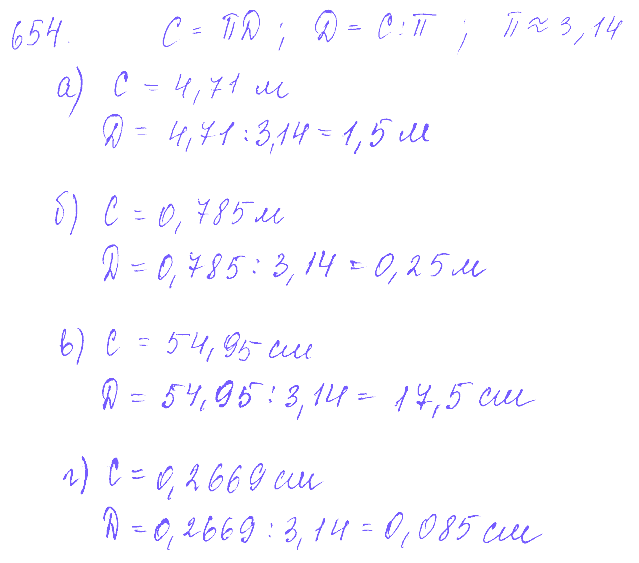 654. С = ПД ; Д = С:П ; П ≈ 3,14
а) С = 4,71 м
Д = 4,71 : 3,14 = 1,5 м
б) С = 0,785 м
Д = 0,785 : 3,14 = 0,25 м
в) С = 54,95 см
Д = 54,95 : 3,14 = 17,5 см
г) С = 0,2669 см
Д = 0,2669 : 3,14 = 0,085 см